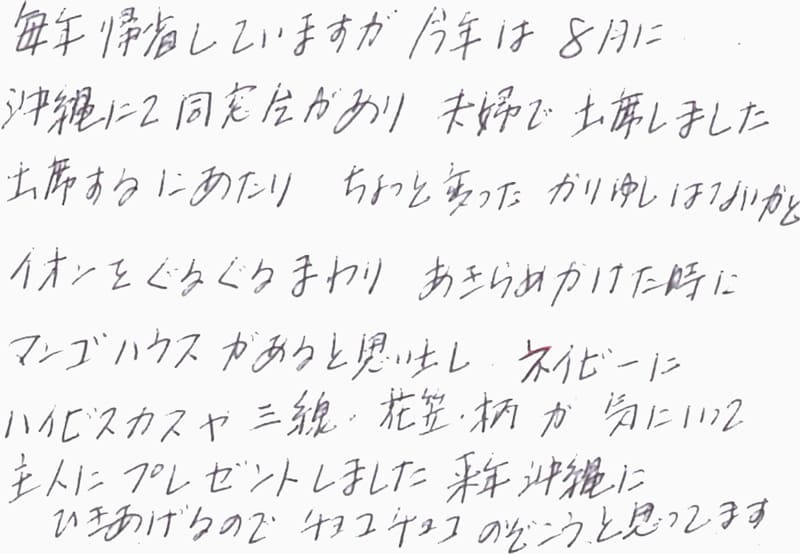 毎年帰省していますが 今年は 8月に
沖縄にて同窓会があり 夫婦で 出席しました
出席するにあたり ちょっと変った かりゆしはないかと
イオンをぐるぐるまわり あきらめかけた時に
マンゴハウスがあると思い出し ネイビーに
ハイビスカスや 三線・花笠・柄が 気にいって
主人に プレゼントしました 来年沖縄に
ひきあげるので チョコチョコ のぞこうと思ってます